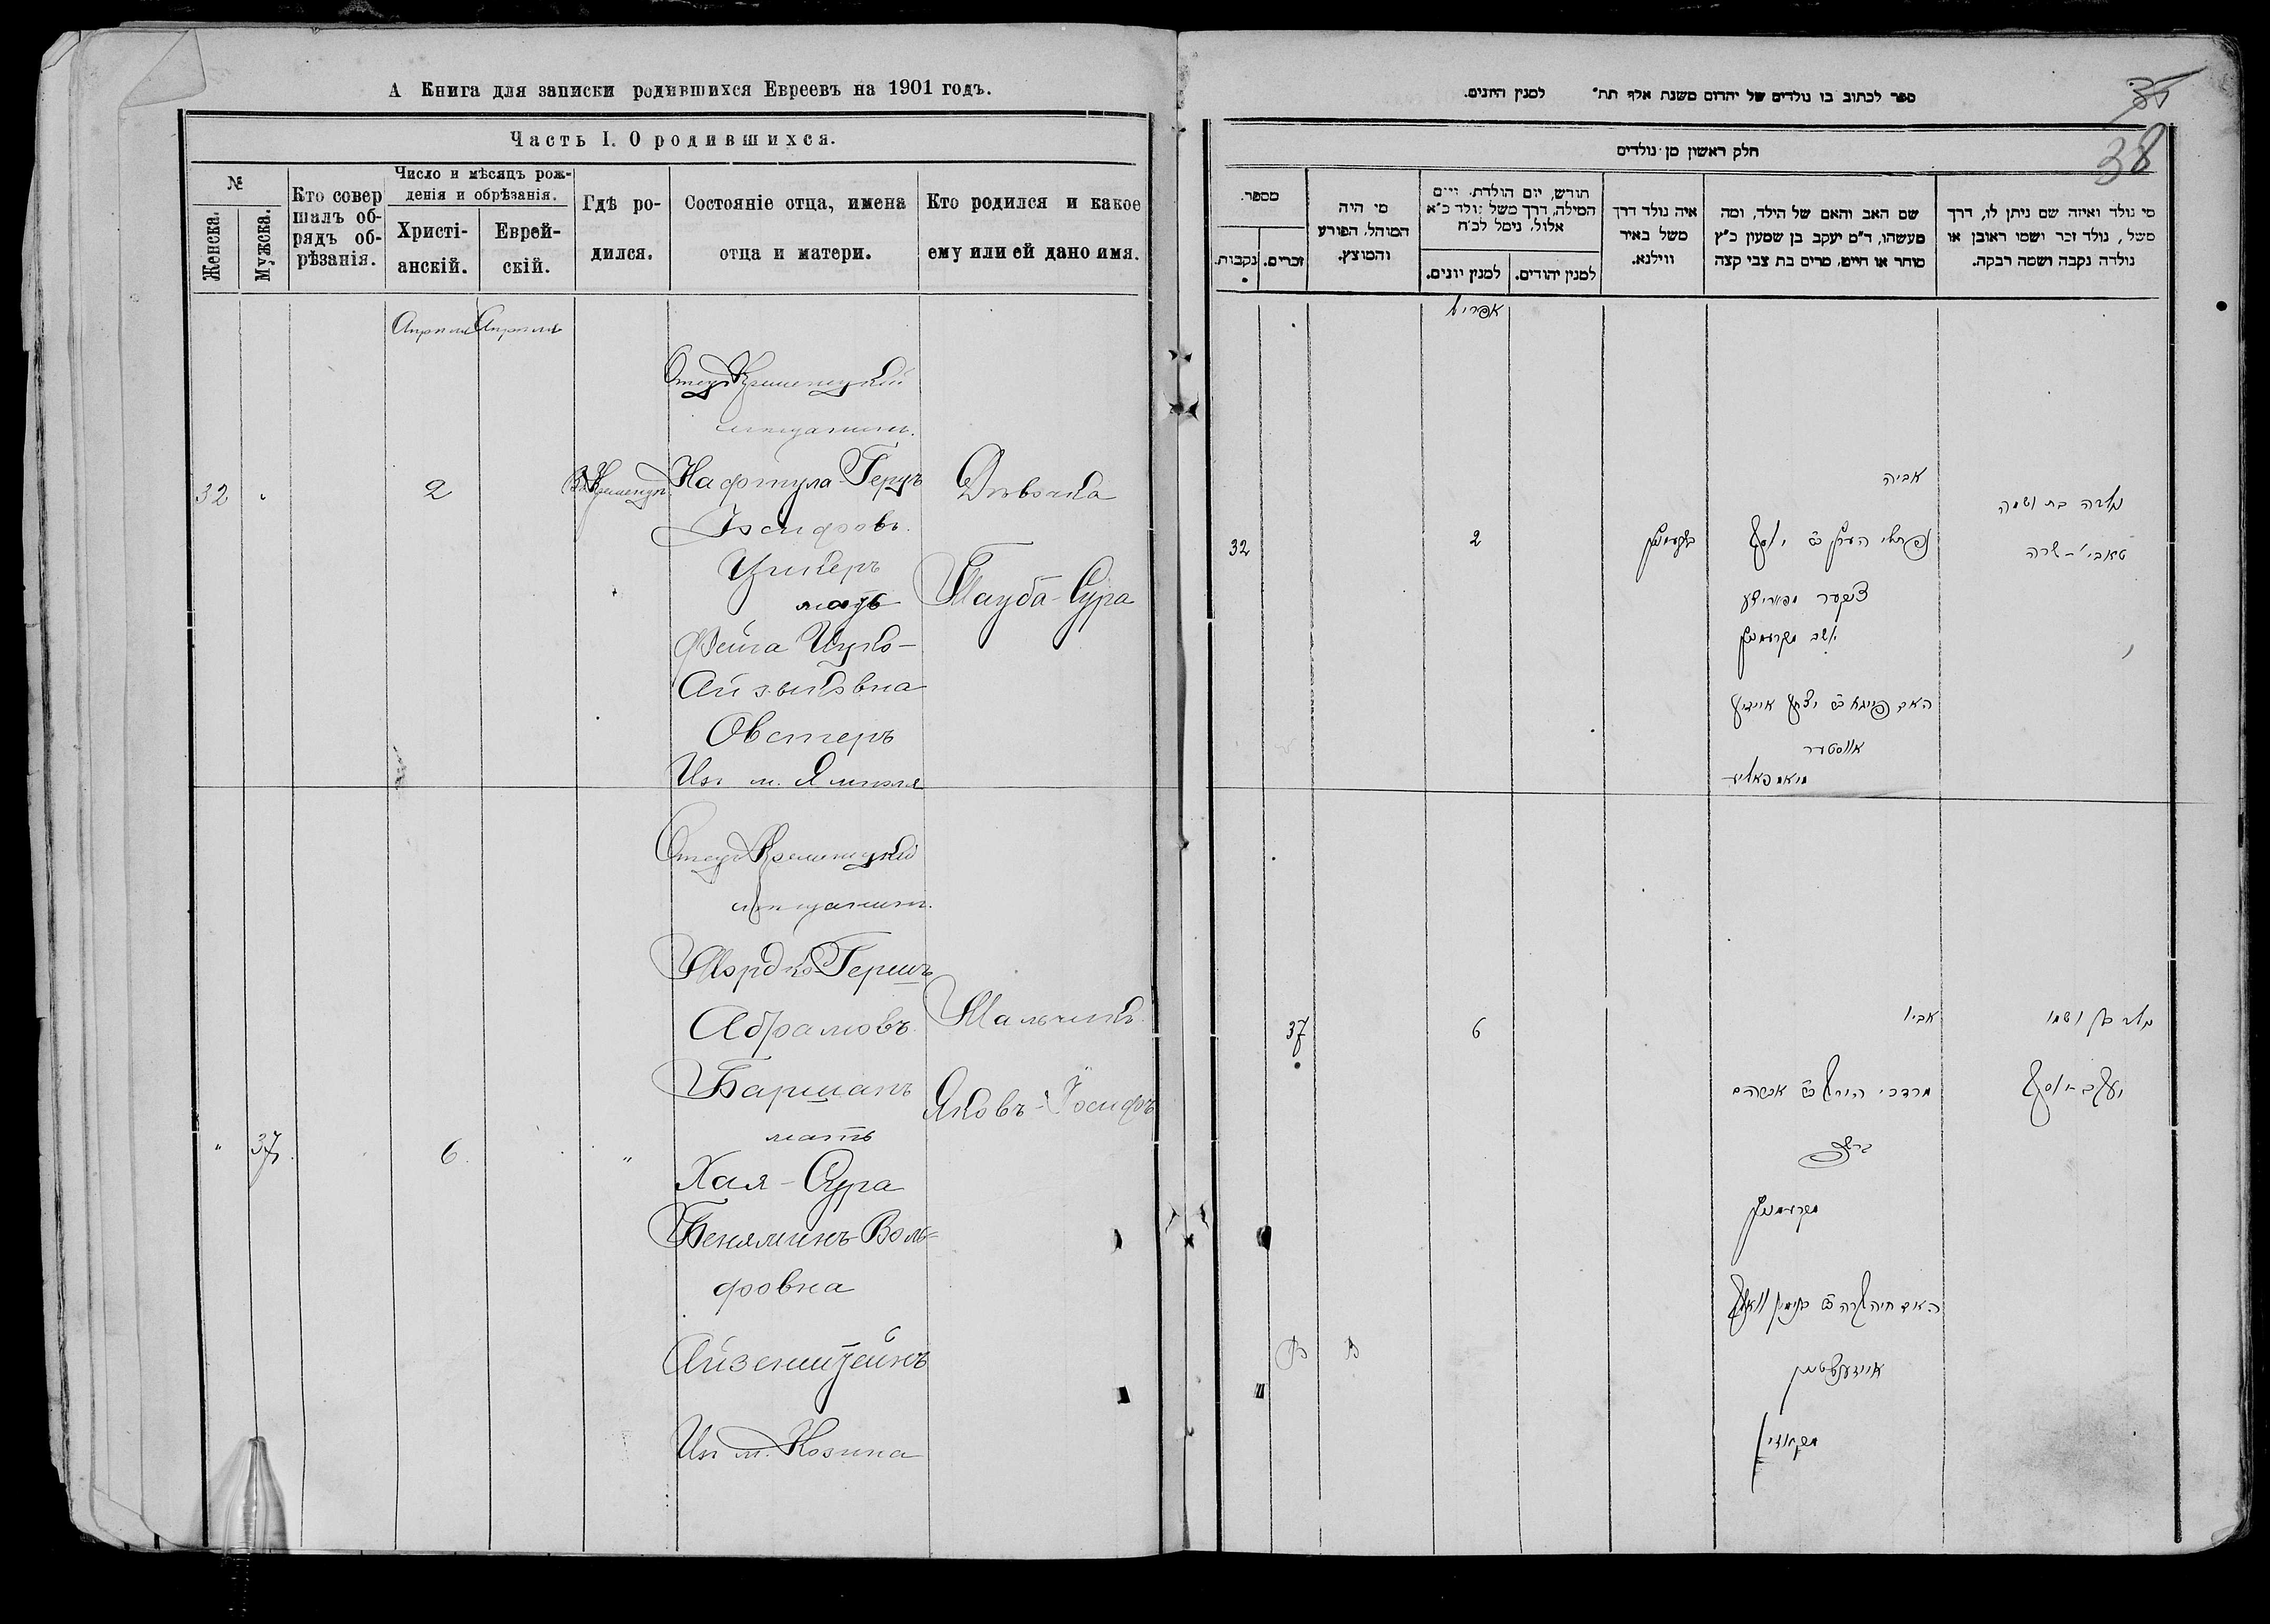 А Книга для записки родившихся Евреевъ на 1901 годъ.
Часть I. О родившихся.
№
Женска.
Мужска.
Кто совер
шалъ об-
рядъ об-
рѣзанія.
Число и мѣсяцъ рож-
денія и обрѣзанія.
Христі-
анскій.
Еврей-
скій.
Гдѣ ро-
дился.
Состояніе отца, имена
отца и матери.
Кто родился и какое
ему или ей дано имя.
Апрель Апрель
Отец Кременецкій
мещанинъ.
32 " 2
Нафтула-Герцъ
Іосифовъ
Цукеръ
мать
Фейга Ицко-
Айзыковна
Овстеръ
Из м. Ямполя
Дѣвочка
Тауба-Сура
Отец Кременецкій
мещанинъ.
Мордко-Гершъ
Абрамовъ
Баршакъ
мать
" 37. 6. "
Хая-Сура
Беняминъ-Воль-
фовна
Айзенштейнъ
Из м. Козина
Мальчикъ
Яковъ-Іосифъ
ספר לכתוב בו נולדים של יהדום משנת אלף תת" למנין היונים.
35
38
חלק ראשון מן נולדים
מספר.
נקבות.
זכרים.
מי היה
המוהל, הפורע
והמוצץ.
חודש, יום הולדת, ויום
המילה, דרך משל נולד כ"א
אלול, נימל לכ"ח
למנין יונים.
למנין יהודים.
איה נולד דרך
משל באיר
ווילנא.
שם האב והאם של הילד, ומה
מעשהו, ד"מ יעקב בן שמעון כ"ץ
סוחר או חייט, מרים בת צבי קצה
מי נולד ואיזה שם ניתן לו, דרך
משל, נולד זכר ושמו ראובן או
נולדה נקבה ושמה רבקה.
אפריל
32 2
אביה
נפתלי הערץ ב"ר יוסף
צוקער
אווסטער
נולדה בת ושמה
טאבי'-שרה
37 6
אביו
מרדכי הירש ב"ר אברהם
נולד בן ושמו
יעקב-יוסף
מקרעמניץ
האם חיה שרה ב"ר בנימין וואלף
אייזענשטיין
В В